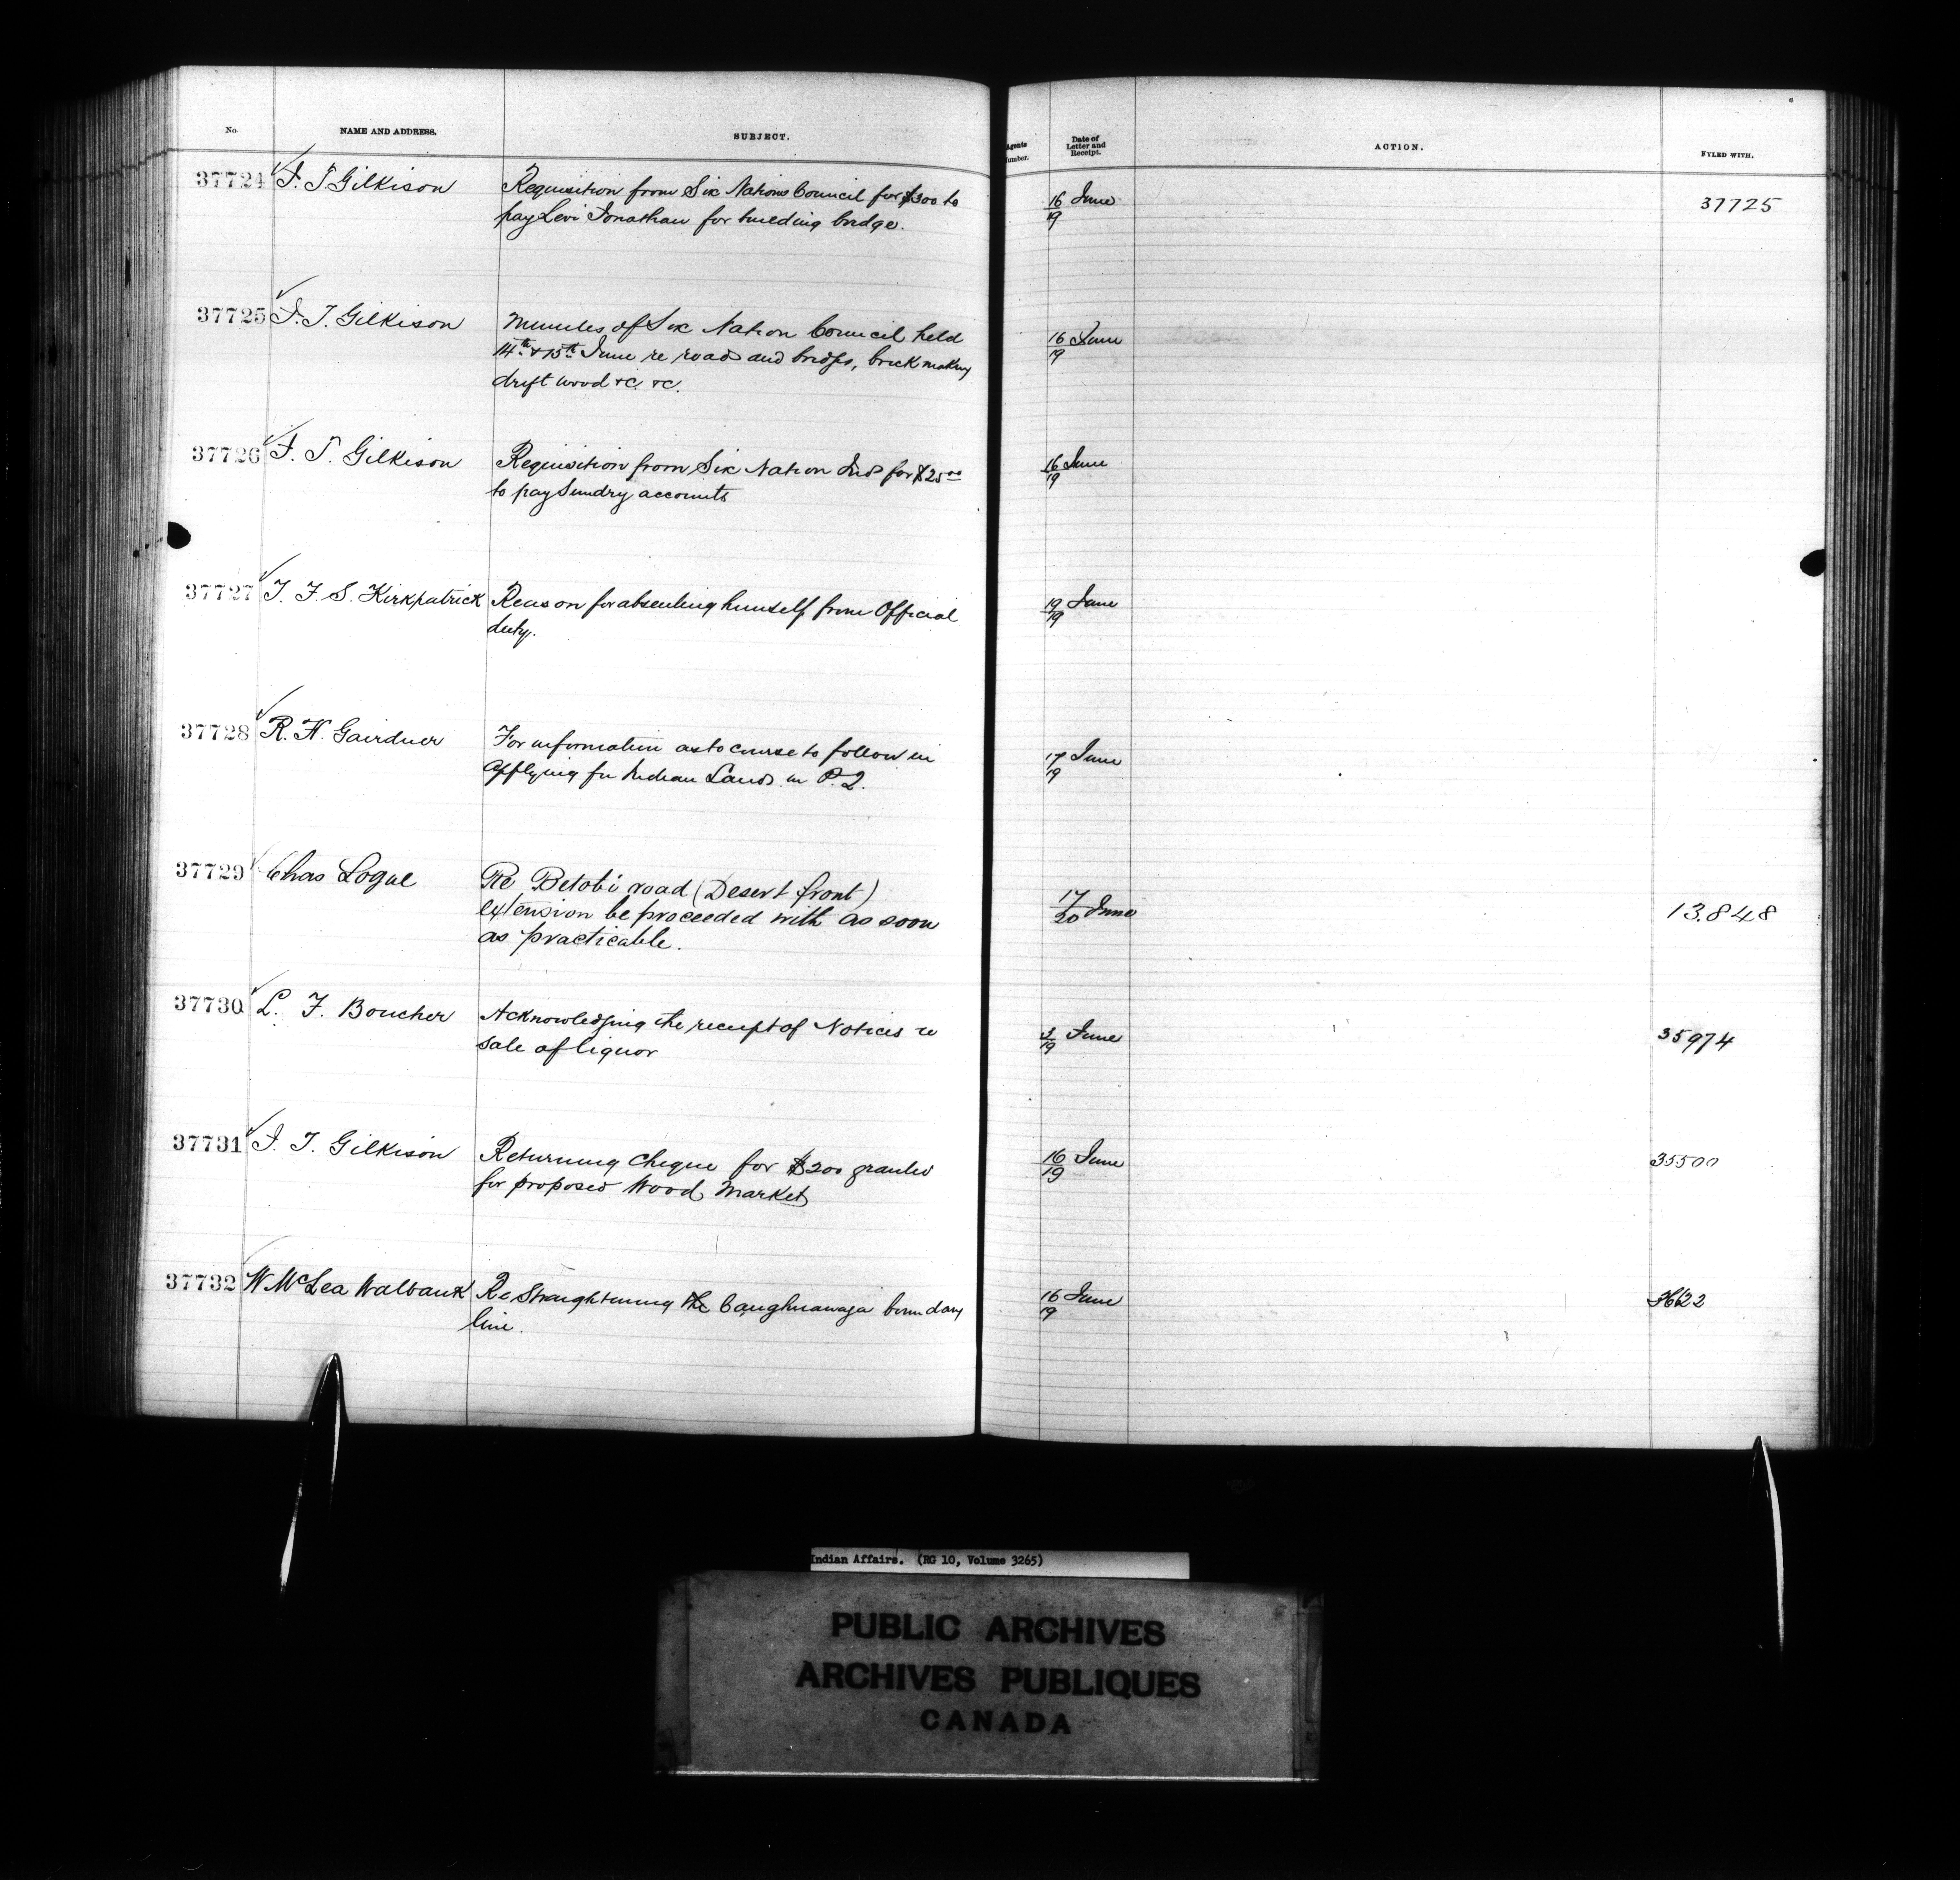 No. NAME AND ADDRESS. SUBJECT. Agents Number. Date of Letter and Receipt. ACTION. FYLED WITH.
37724 J. T Gilkison Requisition from Six Nations Council for $300 to 16/19 June 37725
pay Levi Jonathan for building bridge.
37725 J. T. Gilkison Minutes of Six Nation Council held 16/19 June
14th & 15th June re roads and bridges, brick making
drift wood &c. &c.
37726 J. T. Gilkison Requisition from Six Nation Inds for $25.00 16/19 June
to pay Sundry accounts
37727 T. F. S. Kirkpatrick Reason for absenting himself from Official 19/19 June
duty.
37728 R. H. Gairdner For information as to course to follow in 17/19 June
applying for Indian Lands in P. Q.
37729 Chas Logue Re Betobi road (Desert front) 17/20 June 13.848
extension be proceeded with as soon
as practicable.
37730 L. F. Boucher Acknowledging the receipt of Notices re 3/19 June 35974
sale of liquor
37731 J. T. Gilkison Returning Cheque for $200 granted 16/19 June 35500
for proposed Wood Market
37732 W. McLea Walbank Re Straightening the Caughnawaga boundary 16/19 June
line.
Indian Affairs. (RG 10, Volume 3265)
PUBLIC ARCHIVES
ARCHIVES PUBLIQUES
CANADA